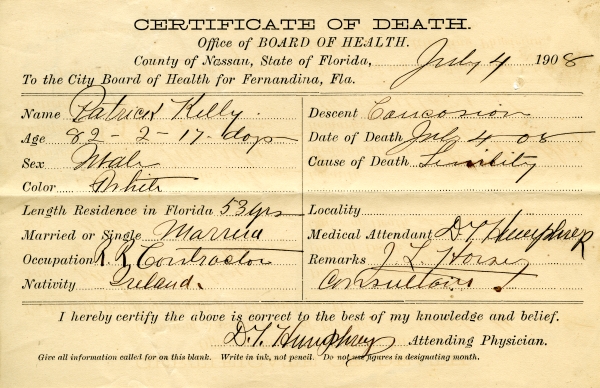 CERTIFICATE OF DEATH.
Office of BOARD OF HEALTH.
County of Nassau, State of Florida, July 4 1908
To the City Board of Health for Fernandina, Fla.
Name Patrick Kelly.
Age 82-2-17-days
Sex Male
Color White
Length Residence in Florida 53 yrs
Married or Single Married
Occupation R.R. Contractor
Nativity Ireland.
Descent Caucosion
Date of Death July 4 08
Cause of Death Senility
Locality
Medical Attendant D. T. Humphrey
Remarks J L Horsey
Consultant
I hereby certify the above is correct to the best of my knowledge and belief.
D. T. Humphrey Attending Physician.
Give all information called for on this blank. Write in ink, not pencil. Do not use figures in designating month.